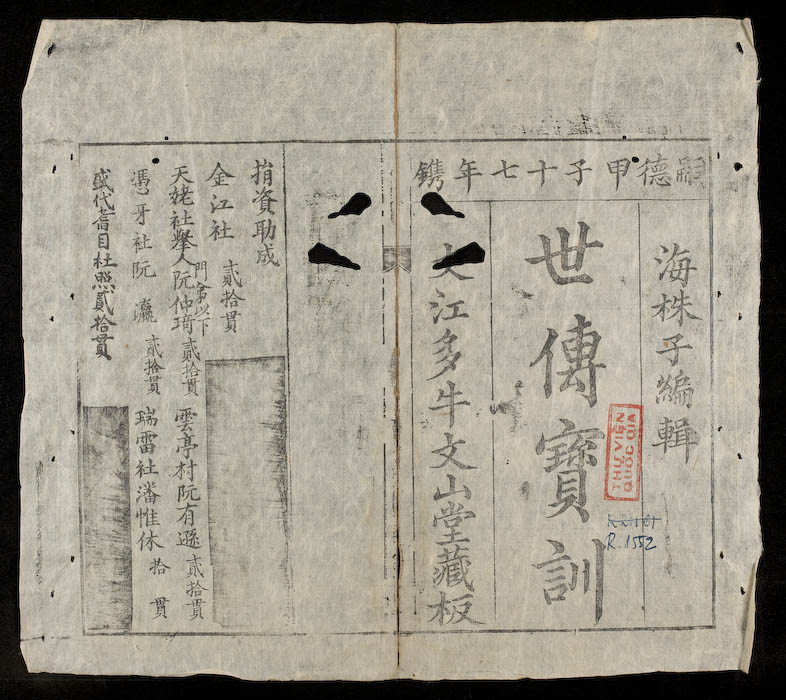 嗣德甲子十七年鐫
海株子編輯
世傳寶訓
大江多牛文山堂藏板
THƯ VIỆN
QUỐC GIA
R.1552
捐資助成
金江社 貳拾貫
天姥社舉人阮仲琦 門弟以下 貳拾貫 雲亭村阮有遜 貳拾貫
憑牙社阮瀛 貳拾貫 瑞雷社潘惟休 拾貫
盛代耆目杜照貳拾貫